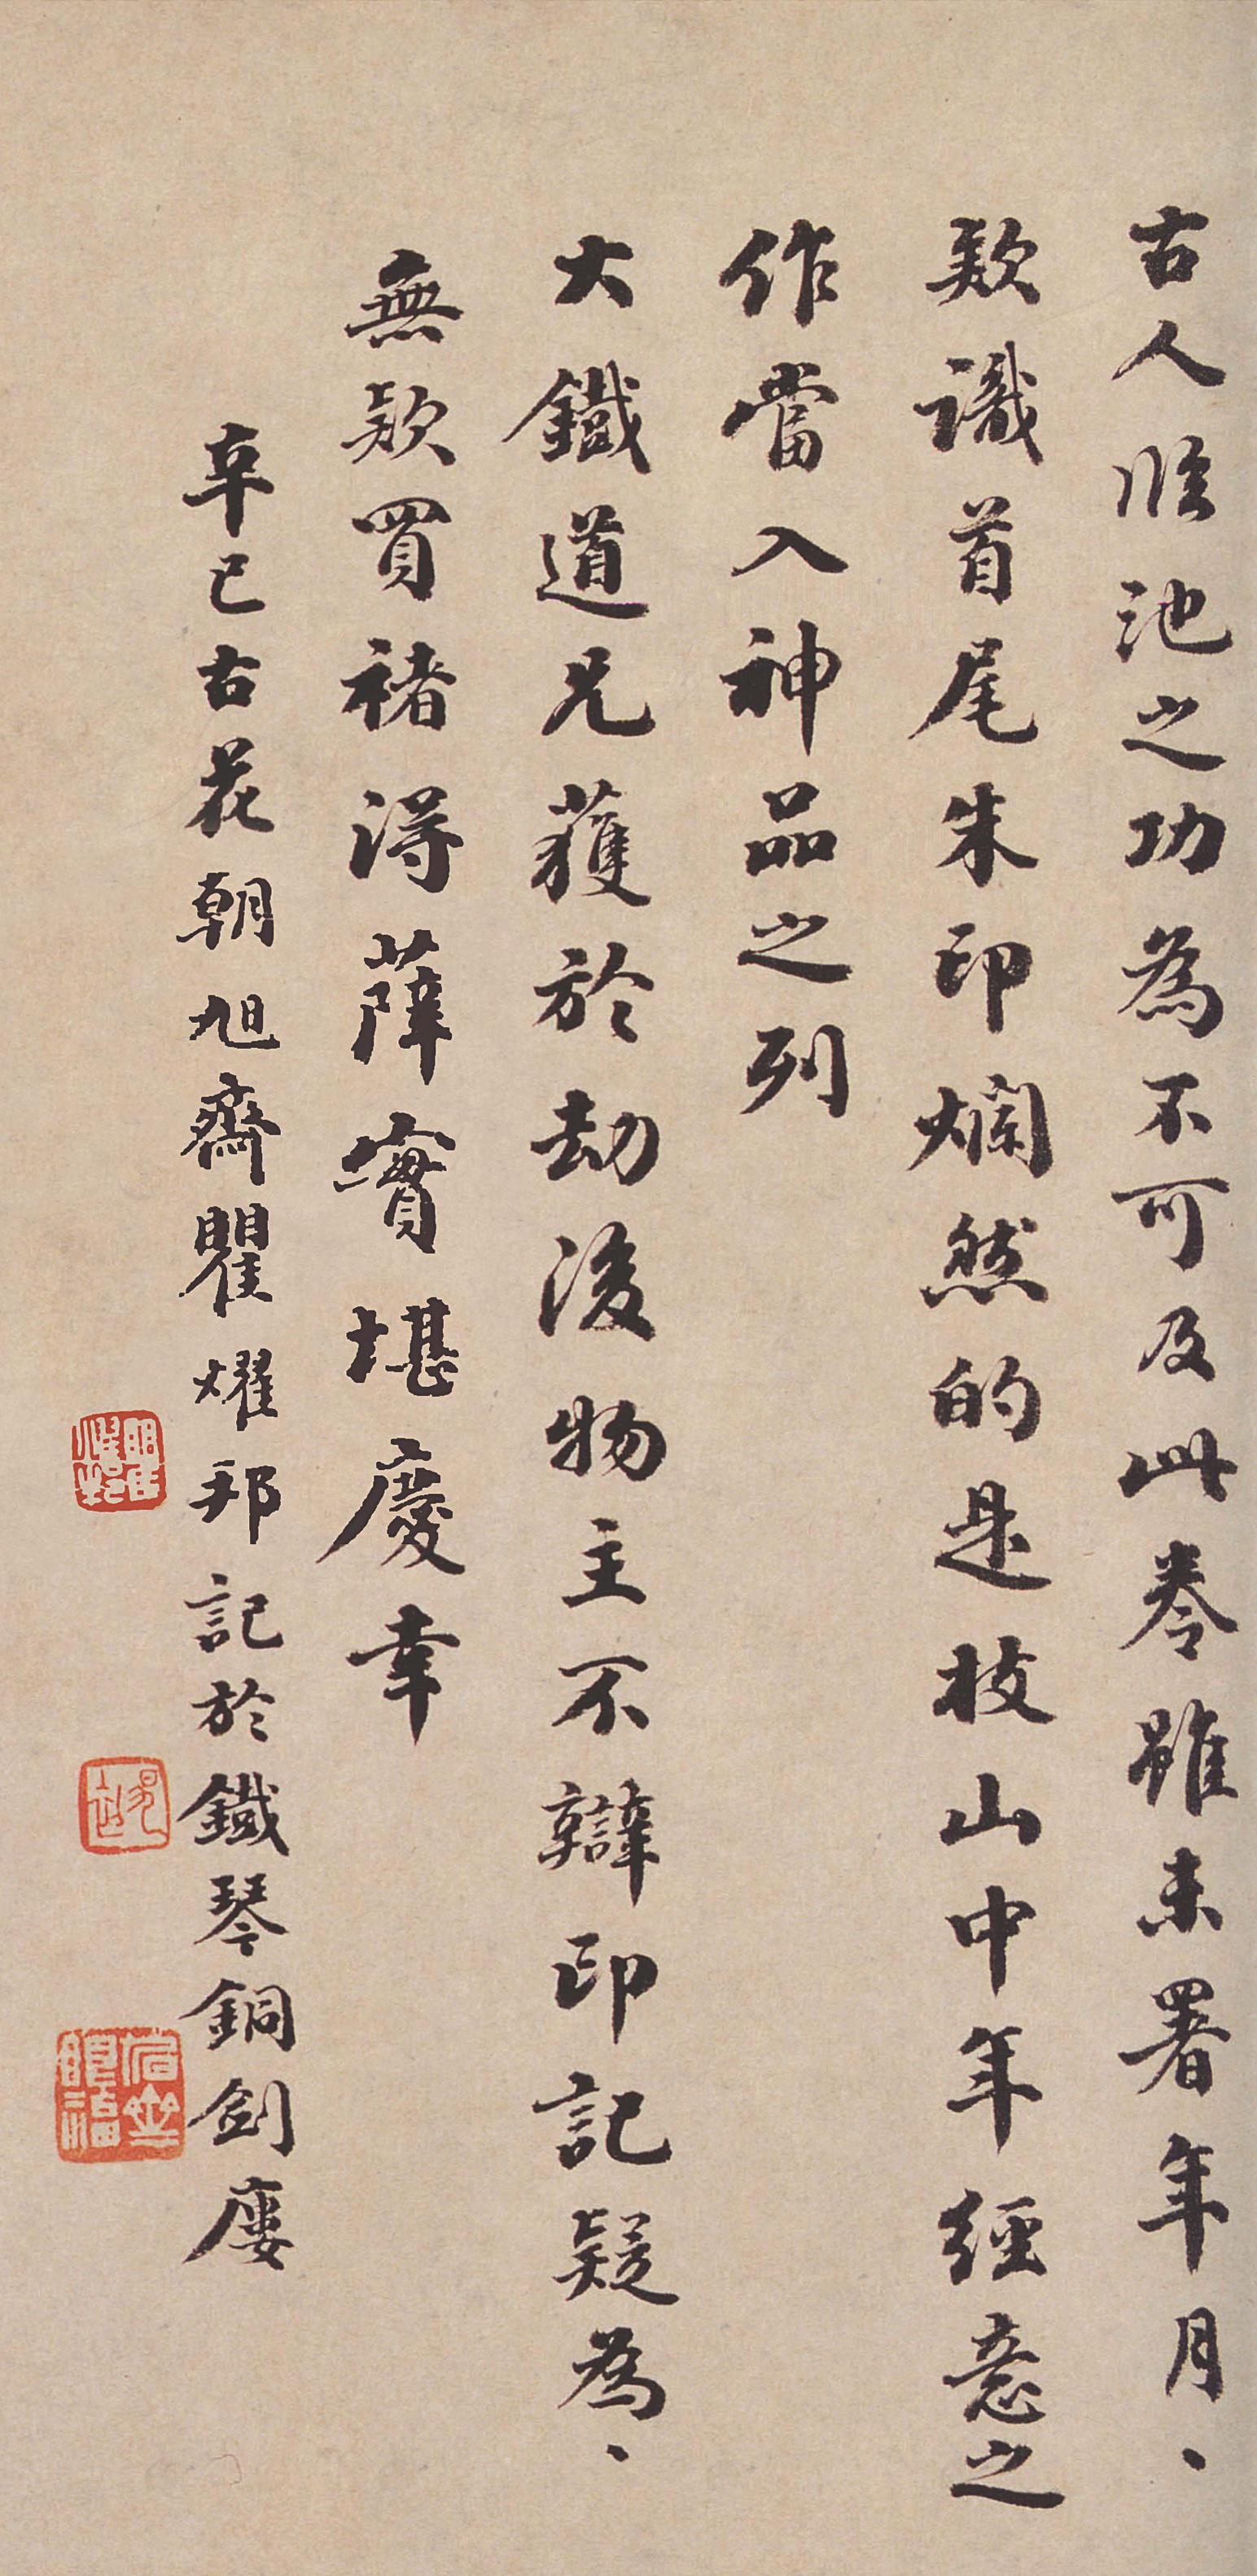 古人臨池之功為不可及此卷雖未署年月、
款識首尾朱印爛然的是枝山中年經意之
作當入神品之列
大鐵道兄獲於劫後物主不辯印記疑為、
無款買褚得薛實堪慶幸
辛巳古花朝旭齋瞿燿邦記於鐵琴銅劍廔